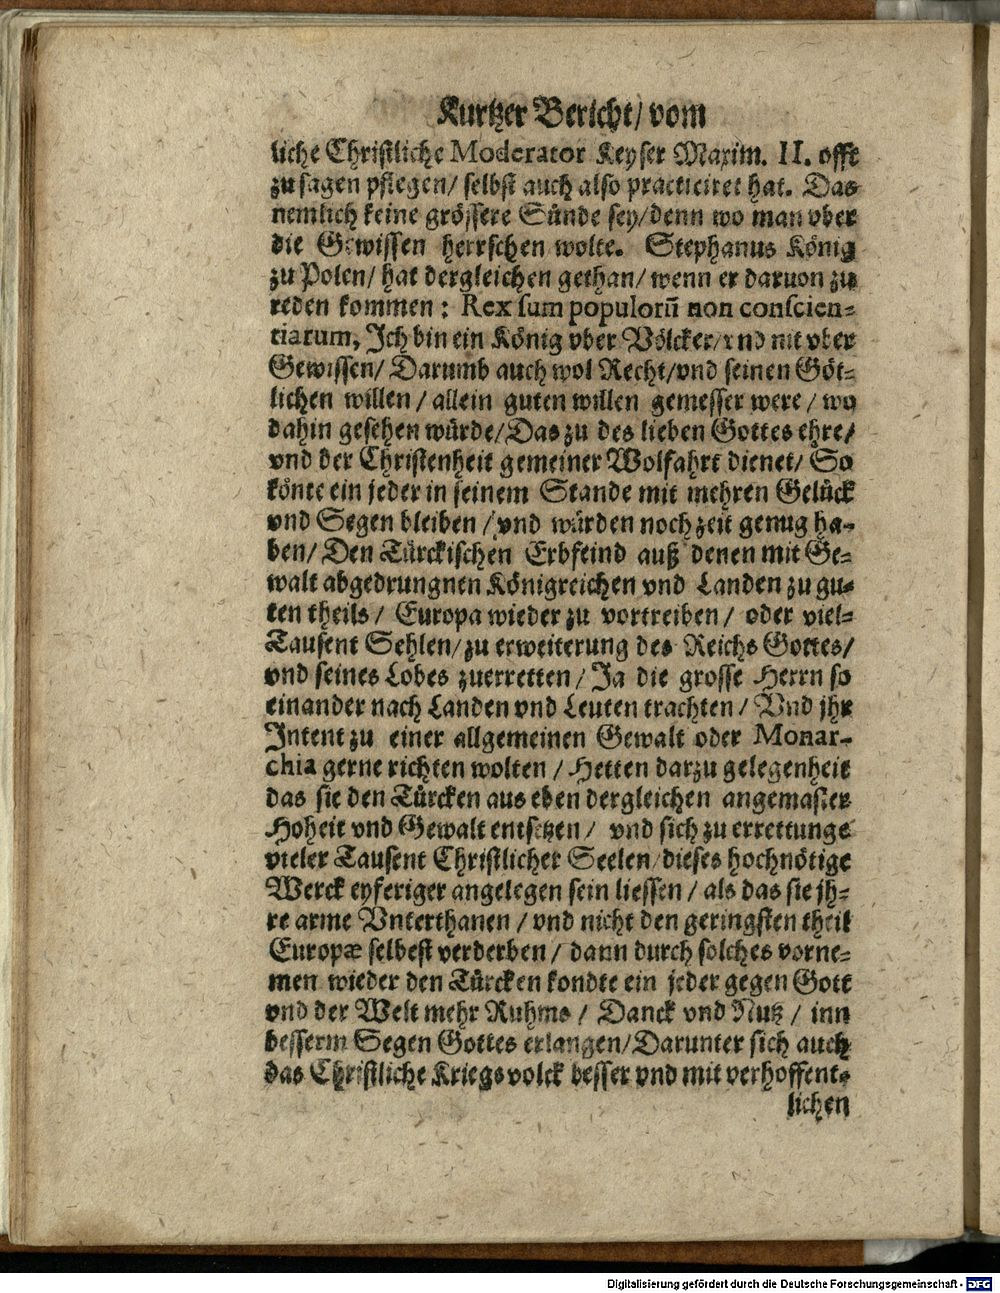 Kurtzer Bericht/ vom
liche Christliche Moderator Keyser Maxim. II. offt
zu sagen pflegen/ selbst auch also practiciret hat. Das
nemlich keine grössere Sünde sey/denn wo man vber
die Gewissen herrschen wolte. Stephanus König
zu Polen/ hat dergleichen gethan/ wenn er daruon zu
reden kommen: Rex sum populorū non conscien-
tiarum, Jch bin ein König vber Völcker/vnd nit vber
Gewissen/ Darumb auch wol Recht/vnd seinen Göt-
lichen willen/ allein guten willen gemesser were/ wo
dahin gesehen würde/Das zu des lieben Gottes ehre/
vnd der Christenheit gemeiner Wolfahrt dienet/ So
könte ein jeder in seinem Stande mit mehren Gelück
vnd Segen bleiben/ vnd würden noch zeit genug ha-
ben/ Den Türckischen Erbfeind auß denen mit Ge-
walt abgedrungnen Königreichen vnd Landen zu gu-
ten theils/ Europa wieder zu vortreiben/ oder viel-
Tausent Sehlen/zu erweiterung des Reichs Gottes/
vnd seines Lobes zuerretten/ Ja die grosse Herrn so
einander nach Landen vnd Leuten trachten/ Vnd jhr
Jntent zu einer allgemeinen Gewalt oder Monar-
chia gerne richten wolten/ Hetten darzu gelegenheit
das sie den Türcken aus eben dergleichen angemaster
Hoheit vnd Gewalt entsetzen/ vnd sich zu errettunge
vieler Tausent Christlicher Seelen/dieses hochnötige
Werck eyferiger angelegen sein liessen/ als das sie jh-
re arme Vnterthanen/ vnd nicht den geringsten theil
Europæ selbest verderben/ dann durch solches vorne-
men wieder den Türcken kondte ein jeder gegen Gott
vnd der Welt mehr Ruhms/ Danck vnd Nutz/ inn
besserm Segen Gottes erlangen/Darunter sich auch
das Christliche Kriegsvolck besser vnd mit verhoffent-
lichen
Digitalisierung gefördert durch die Deutsche Forschungsgemeinschaft - DFG